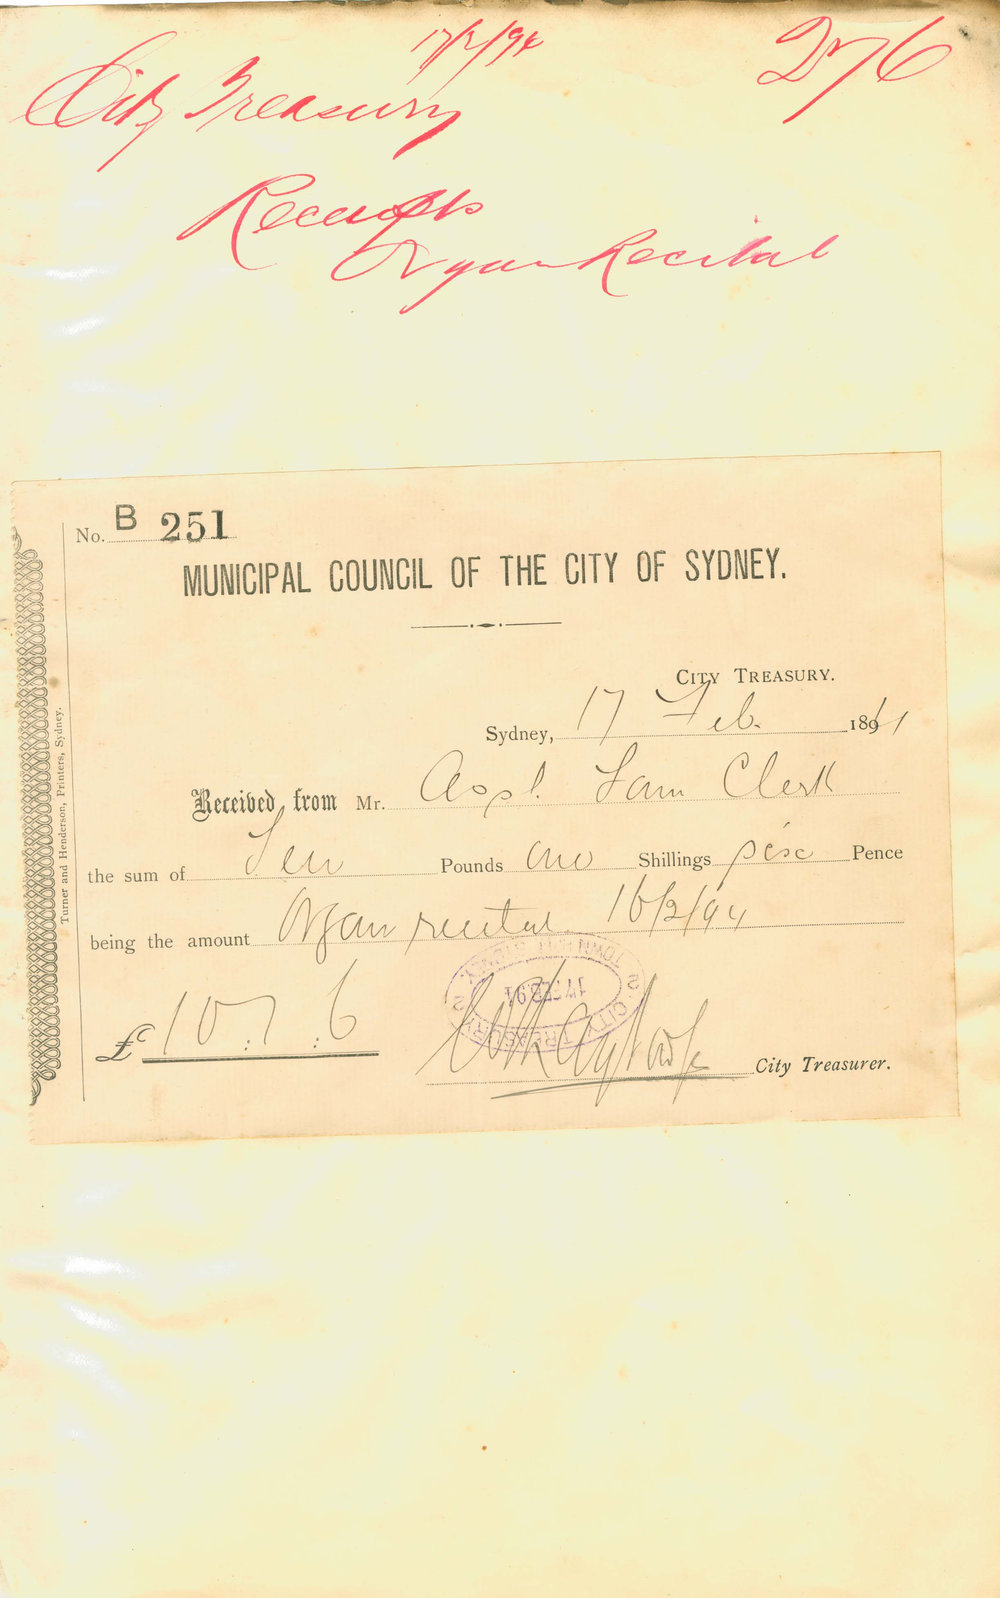 17/2/94
276
City Treasury
Receipts
Organ Recital
No. B 251
MUNICIPAL COUNCIL OF THE CITY OF SYDNEY.
CITY TREASURY.
Sydney, 17 Feb. 1894
Received from Mr. Assl. Town Clerk
the sum of Ten Pounds one Shillings six Pence
being the amount Organ recital 16/2/94
£ 10 : 1 : 6
City Treasurer.
TOWN HALL SYDNEY
17 FEB. 94
2 CITY TREASURY 2
Turner and Henderson, Printers, Sydney.